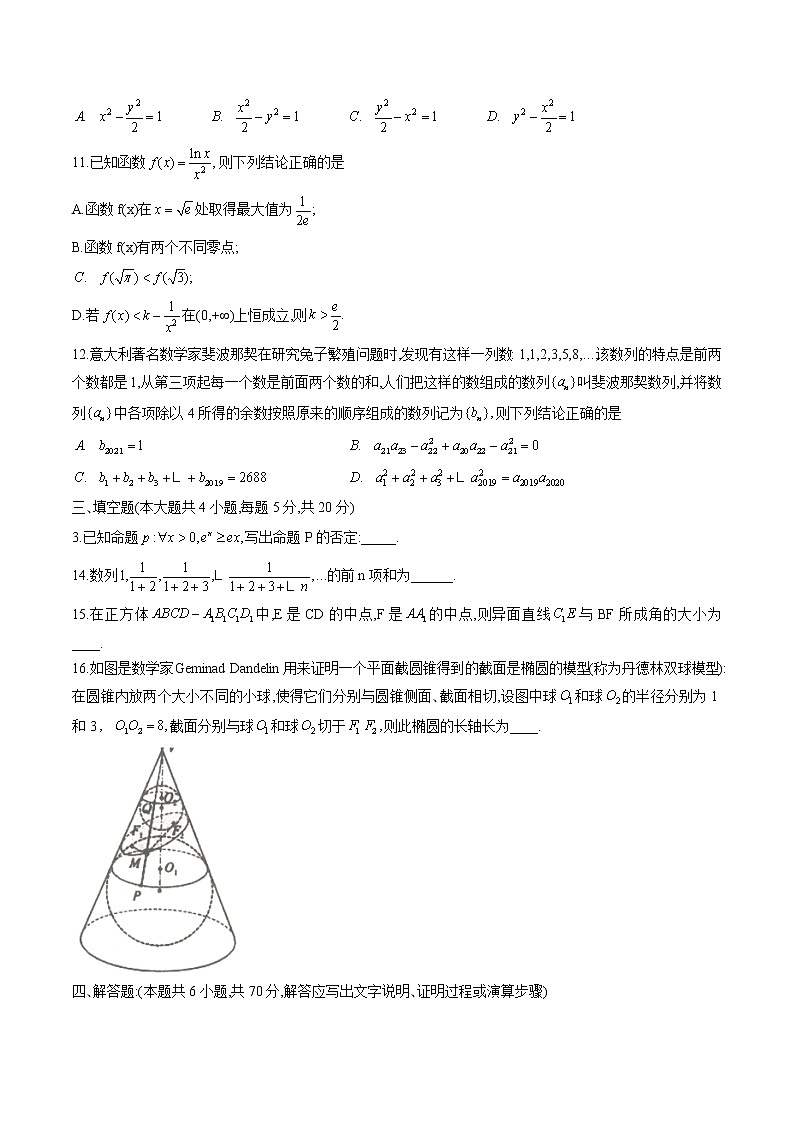 A. x² − y²/2 = 1 B. x²/2 − y² = 1 C. y²/2 − x² = 1 D. y² − x²/2 = 1
11.已知函数 f(x) = ln x / x², 则下列结论正确的是
A.函数 f(x)在 x = √e 处取得最大值为 1/2e;
B.函数 f(x)有两个不同零点;
C. f(√π) < f(√3);
D.若 f(x) < k − 1/x² 在(0,+∞)上恒成立,则 k > e/2.
12.意大利著名数学家斐波那契在研究兔子繁殖问题时,发现有这样一列数 1,1,2,3,5,8,…该数列的特点是前两
个数都是 1,从第三项起每一个数是前面两个数的和,人们把这样的数组成的数列{aₙ}叫斐波那契数列,并将数
列{aₙ}中各项除以 4 所得的余数按照原来的顺序组成的数列记为{bₙ},则下列结论正确的是
A. b₂₀₂₁ = 1 B. a₂₁a₂₃ − a₂₂² + a₂₀a₂₂ − a₂₁² = 0
C. b₁ + b₂ + b₃ +∟ + b₂₀₁₉ = 2688 D. a₁² + a₂² + a₃² +∟ a₂₀₁₉² = a₂₀₁₉a₂₀₂₀
三、填空题(本大题共 4 小题,每题 5 分,共 20 分)
3.已知命题 p :∀x > 0,eˣ ≥ ex,写出命题 P 的否定:_____.
14.数列1, 1/(1+2), 1/(1+2+3),∟ 1/(1+2+3+∟ n),…的前 n 项和为______.
15.在正方体 ABCD − A₁B₁C₁D₁中,E 是 CD 的中点,F 是 AA₁的中点,则异面直线 C₁E 与 BF 所成角的大小为
____.
16.如图是数学家 Geminad Dandelin 用来证明一个平面截圆锥得到的截面是椭圆的模型(称为丹德林双球模型):
在圆锥内放两个大小不同的小球,使得它们分别与圆锥侧面、截面相切,设图中球 O₁和球 O₂的半径分别为 1
和 3， O₁O₂ = 8,截面分别与球 O₁和球 O₂切于 F₁ F₂,则此椭圆的长轴长为____.
V
Q
O
F
F
M
O₁
P
四、解答题:(本题共 6 小题,共 70 分,解答应写出文字说明、证明过程或演算步骤)